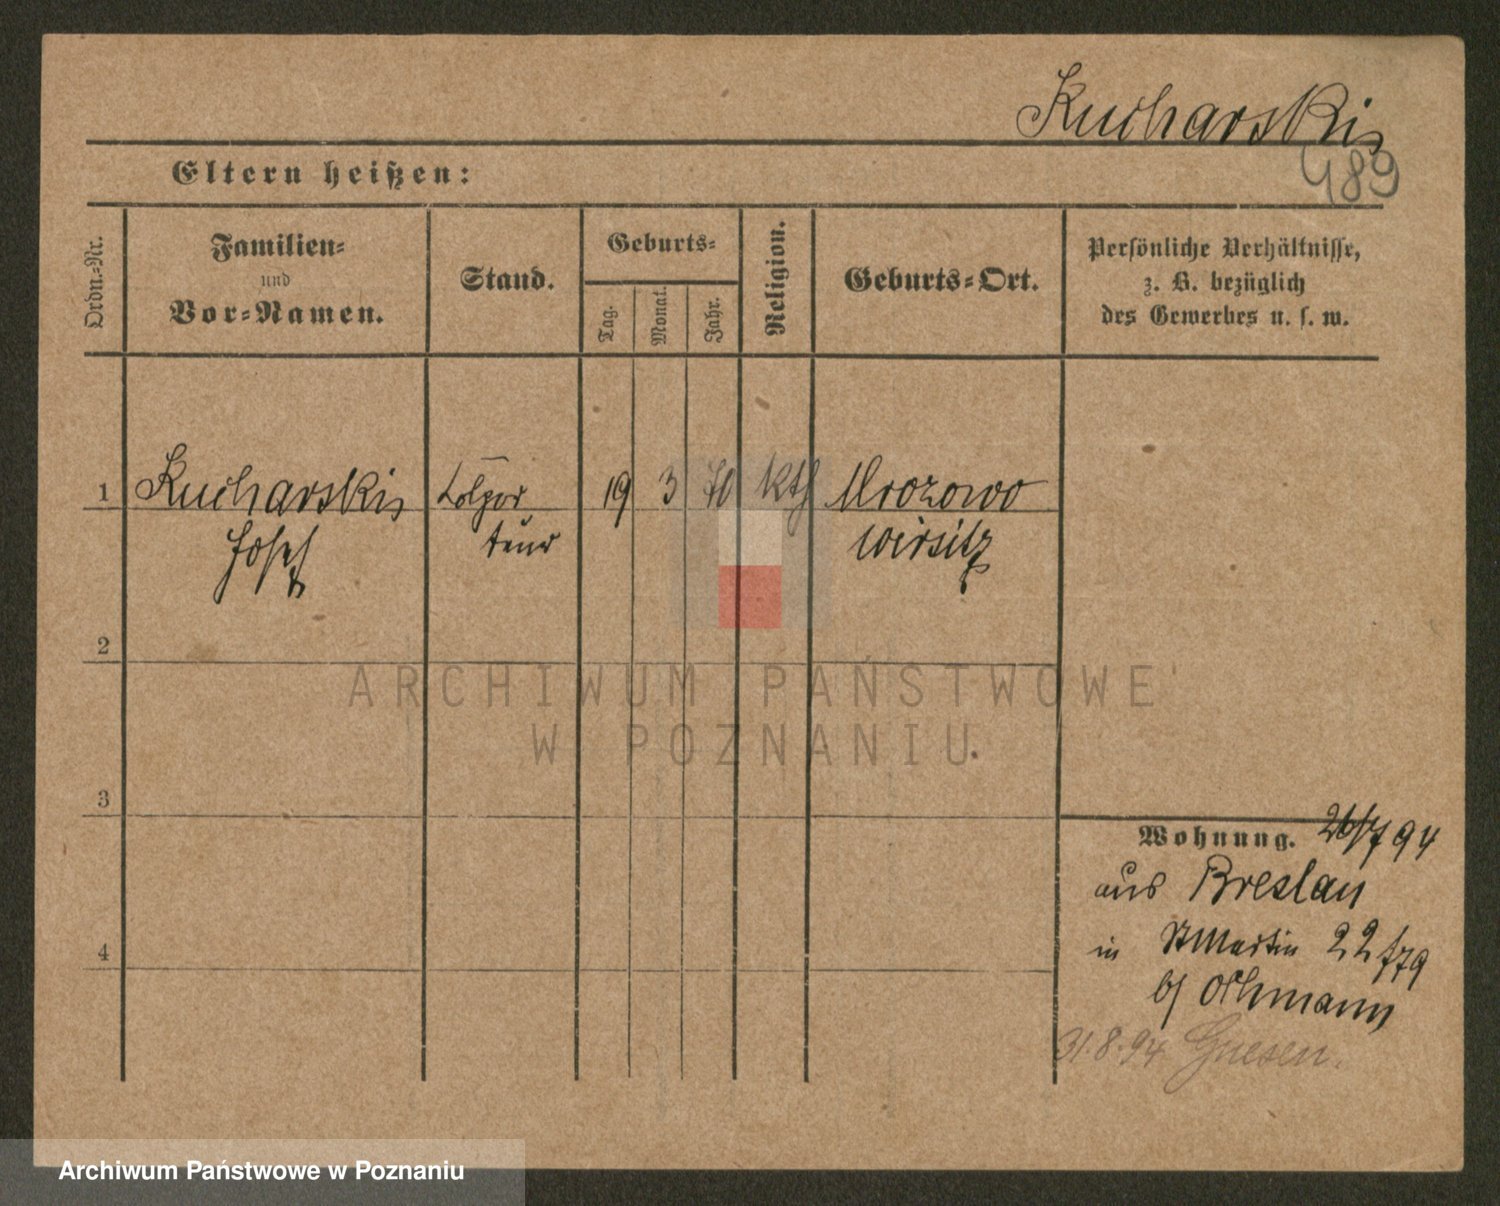 Kucharski
489
Eltern heißen:
Ordn.-Nr.
Familien-
und
Vor-Namen.
Stand.
Geburts-
Tag.
Monat.
Jahr.
Religion.
Geburts-Ort.
Persönliche Verhältnisse,
z. B. bezüglich
des Gewerbes u. s. w.
1 Kucharski Kolpor 19 3 70 kth Mrozowo
Josef teur Wirsitz
2
ARCHIWUM PAŃSTWOWE
W POZNANIU
3
Wohnung. 26/7 94
aus Breslau
4
in St Martin 22/79
b/ Othmann
31.8.94 Gnesen.
Archiwum Państwowe w Poznaniu